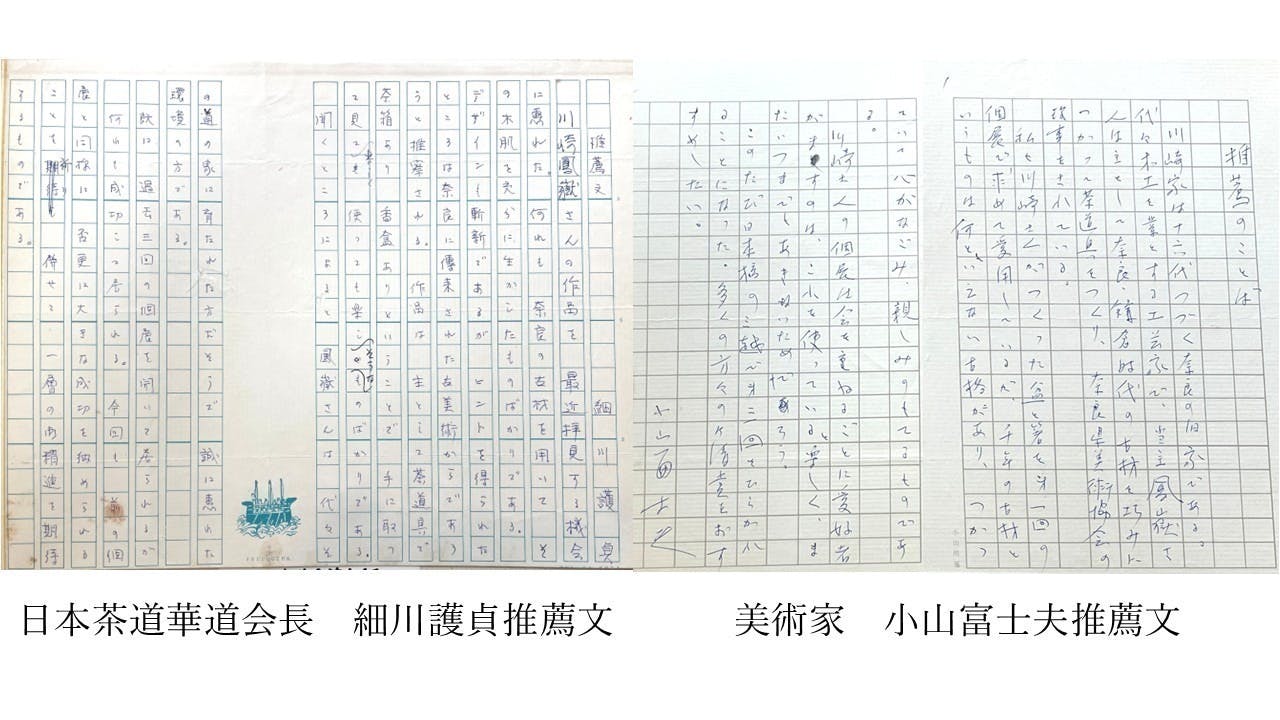 推薦文　細川護貞
川崎鳳嶽さんの作品を最近拝見する機会
に恵れた。何れも奈良の古材を用いてそ
の木肌を充分に生かしたものばかりである。
デザインも斬新であるがヒントを得られた
ところは奈良に傳来された古美術からであろ
うと推察される。作品は主として茶道具で
茶箱あり香盒ありということで手に取っ
て見ても使っても楽しいものばかりである。
聞くところによると鳳嶽さんは代々そ
の道の家に育たれた方だそうで誠に恵れた
環境の方である。
既に過去三回の個展を開いて居られるが
何れも成功して居られる。今回も前の個
展と同様に否更に大きな成功を収められる
ことを 併せて一層の御精進を期待
するものである。
日本茶道華道会長　細川護貞推薦文
推薦のことば
川崎家は十六代つづく奈良の旧家である。
代々木工を業とする工芸家で、当主鳳山嶽さ
んは主として奈良・鎌倉時代の古材を巧みに
つかって茶道具をつくり、奈良県美術協会の
理事をされている。
私も川崎さんがつくった盆と箸を第一回の
個展で求めて愛用しているが、千年の古材と
いうものは何ともいえない古格があり、つかっ
ていて心がなごみ、親しみのもてるものであ
る。
川崎さんの個展は会を重ねるごとに愛好者
がますのは、これを使っていると楽しく、ま
たいつまでもあきないためだろう。
このたび日本橋の三越で第三回をひらかれ
ることになった。多くの方々の御清 をおす
すめしたい。
小山冨士夫
美術家　小山富士夫推薦文